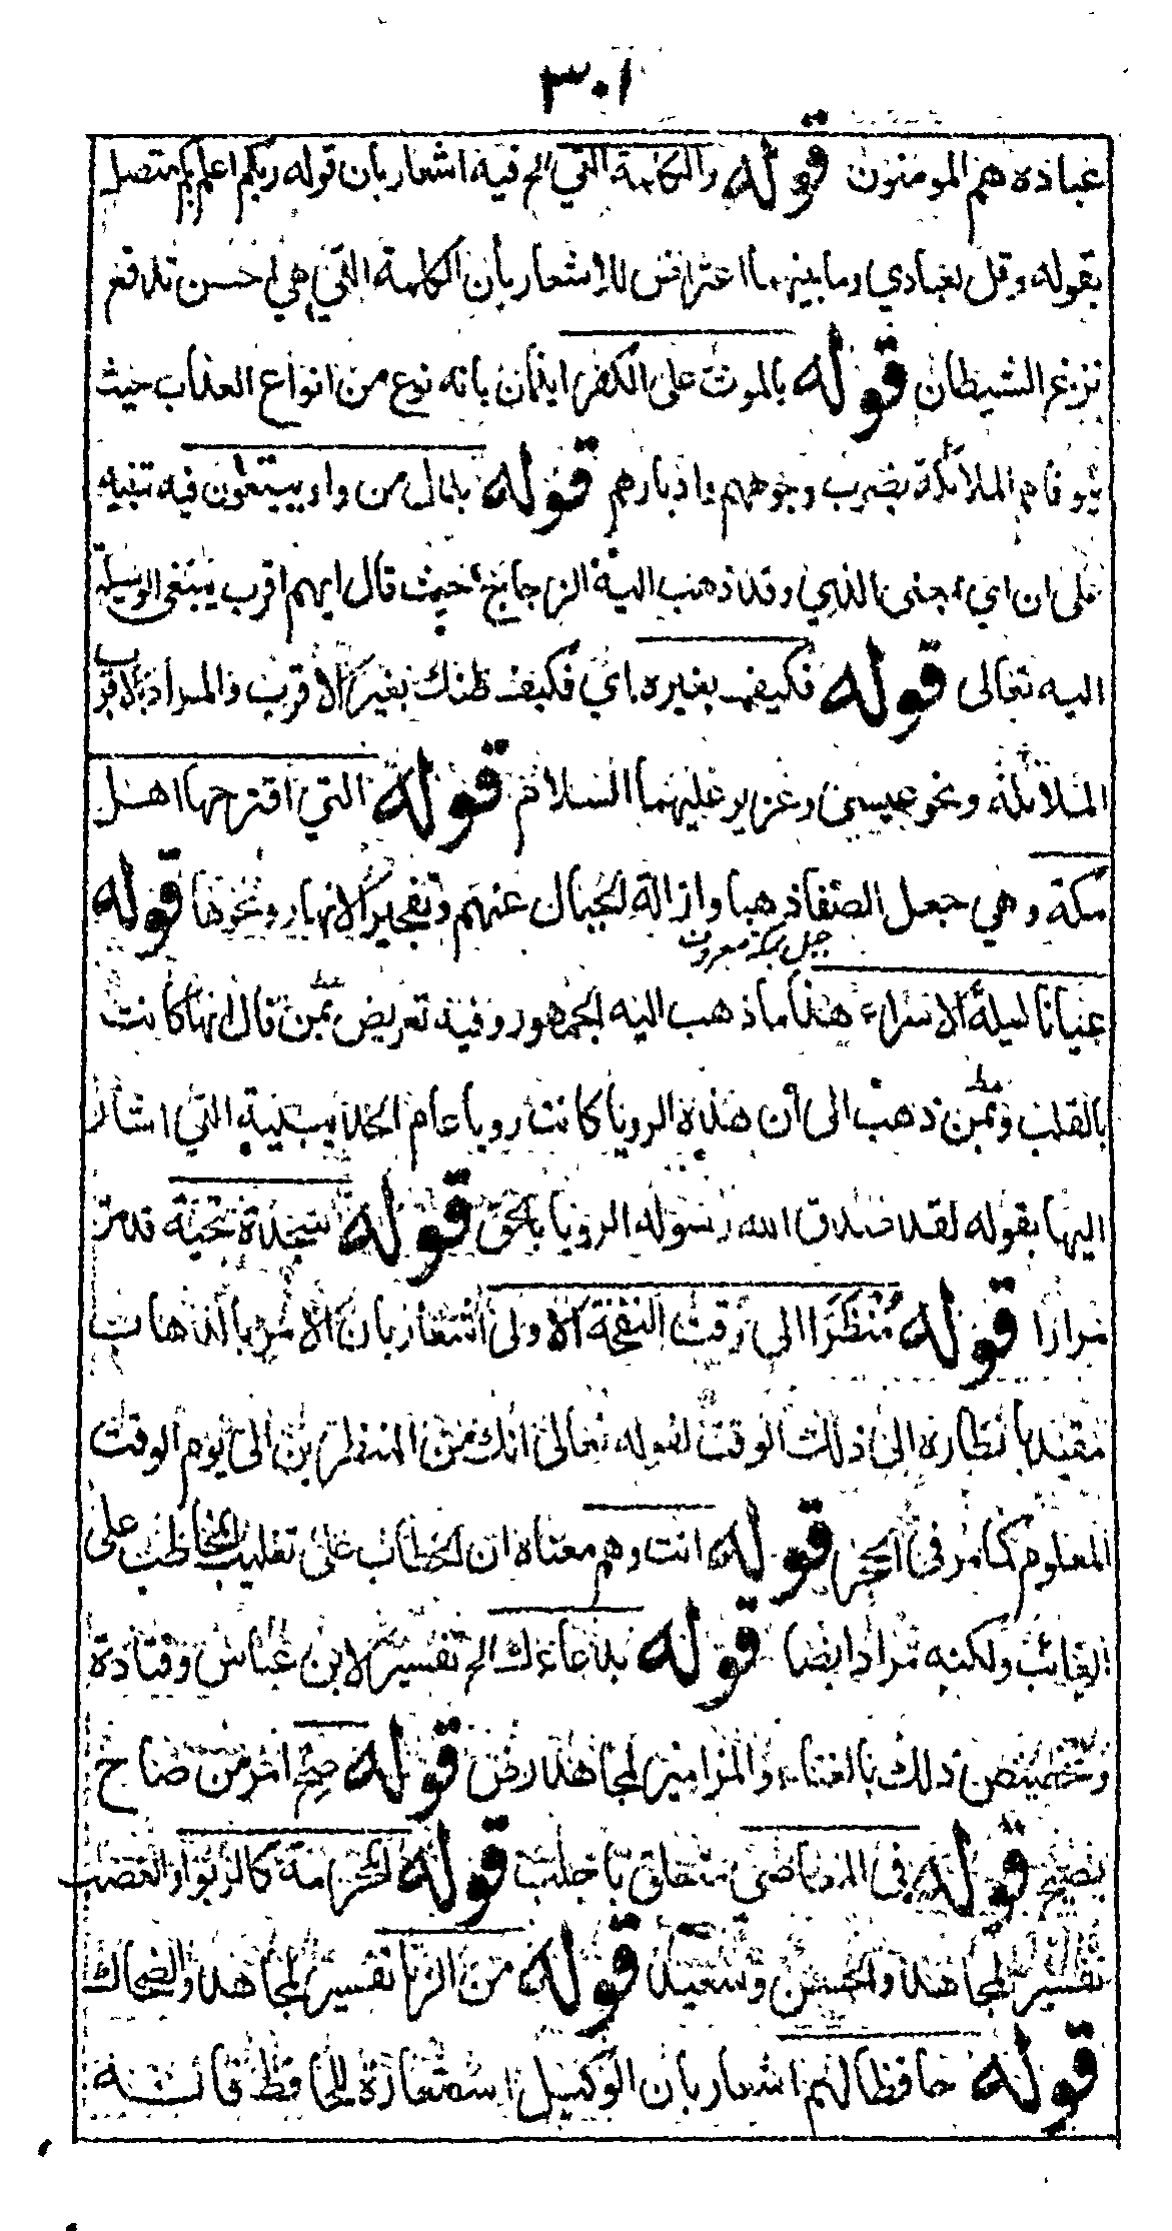 ٣٠١
عباده هم المومنون قوله والكلمة التي الخ فيه اشعار بان قوله ربكم اعلم بكم متصل
بقوله وقل لعبادي وما بينهما اعتراض للاشعار بان الكلمة التي هي احسن تدفع
نزغ الشيطان قوله بالموت على الكفر ايذان بانه نوع من انواع العذاب حيث
يتوفاهم الملائكة بضرب وجوههم وادبارهم قوله بدل من واو يبتغون فيه تنبيه
على ان اي بمعنى الذي وقد ذهب اليه الزجاج حيث قال ايهم اقرب يبتغى الوسيلة
اليه تعالى قوله فكيف بغيره اي فكيف ظنك بغير الاقرب والمراد بالاقرب
الملائكة ونحو عيسى وعزير عليهما السلام قوله التي اقترحها اهل
مكة وهي جعل الصفا ذهبا وازالة الجبال عنهم وتفجير الانهار ونحوها قوله
جبل بمكة معروف
عيانا ليلة الاسراء هذا ما ذهب اليه الجمهور وفيه تعريض بمن قال انها كانت
بالقلب وبمن ذهب الى أن هذه الرويا كانت رويا عام الحديبية التي اشار
اليها بقوله لقد صدق الله رسوله الرويا بالحق قوله سجدة تحية قد مر
مرارا قوله مُنْظَرًا الى وقت النفخة الاولى اشعار بان الامر بالذهاب
مقيد بانتظاره الى ذلك الوقت لقوله تعالى انك من المنظرين الى يوم الوقت
المعلوم كما مر في الحجر قوله انت وهم معناه ان الخطاب على تغليب المخاطب على
الغائب ولكنه مراد ايضا قوله بدعاءك الخ تفسير لابن عباس وقتادة
وتخصيص ذلك بالغناء والمزامير لمجاهد رض قوله صح امر من صاح
يصيح قوله في المعاصى متعلق باجلب قوله المحرمة كالربوا والغصب
تفسير لمجاهد والحسن وسعيد قوله من الزنا تفسير لمجاهد والضحاك
قوله حافظا لهم اشعار بان الوكيل استعارة للحافظ فانه